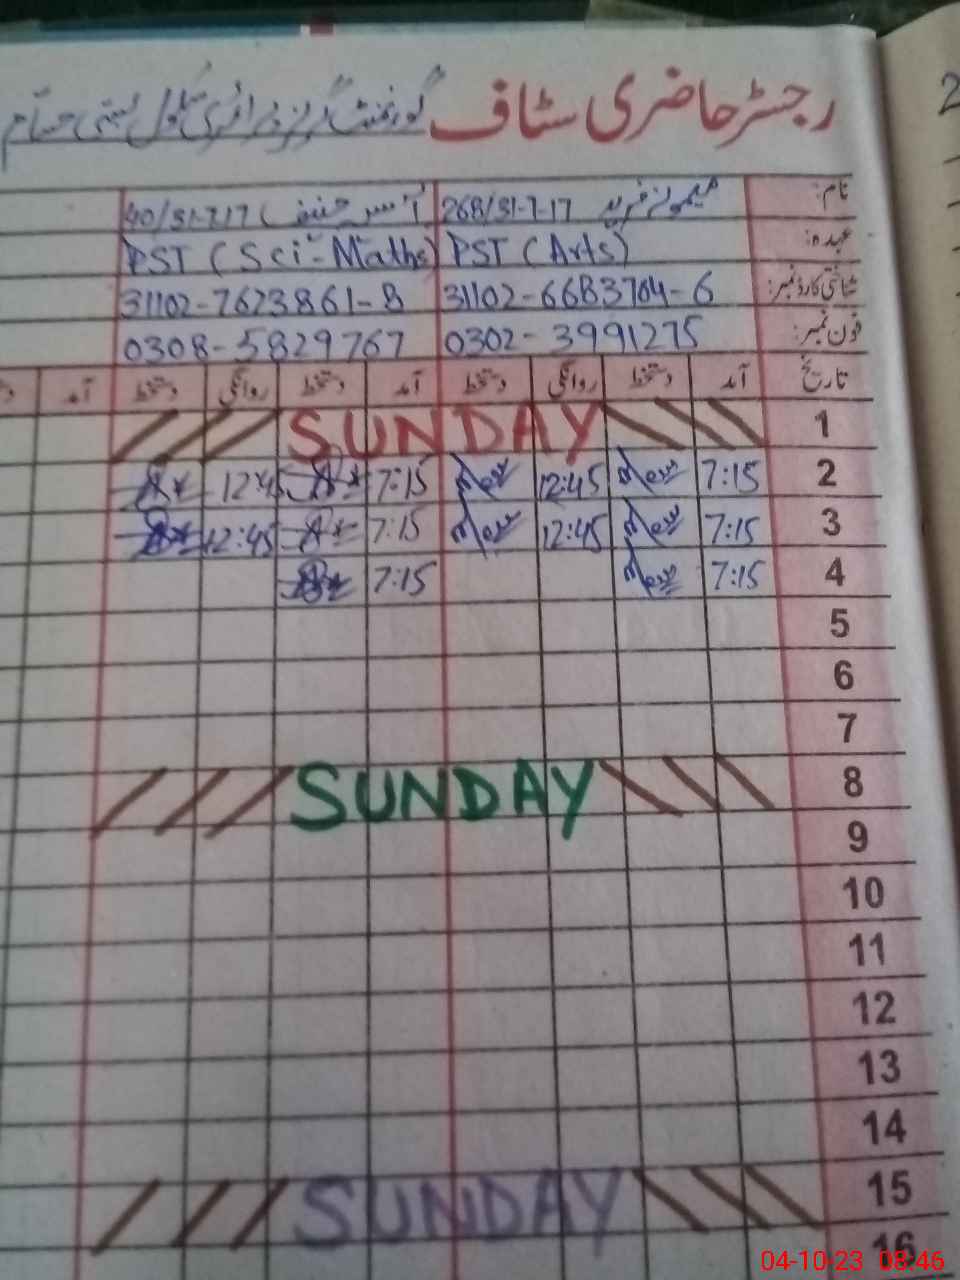 رجسٹر حاضری سٹاف گورنمنٹ گرلز پرائمری سکول بستی حسام
2
نام: میمونہ فرید 268/31-7-17 آنسہ حنیف 40/31-7-17
عہدہ: PST (Arts) PST (Sci-Maths)
شناختی کارڈ نمبر: 31102-6683764-6 31102-7623861-8
فون نمبر: 0302-3991275 0308-5829767
تاریخ آمد دستخط روانگی دستخط آمد دستخط روانگی دستخط آمد
1 SUNDAY
2 7:15 12:45 7:15 12:45
3 7:15 12:45 7:15 12:45
4 7:15 7:15
5
6
7
8 SUNDAY
9
10
11
12
13
14
15 SUNDAY
16
04-10-23 08:46